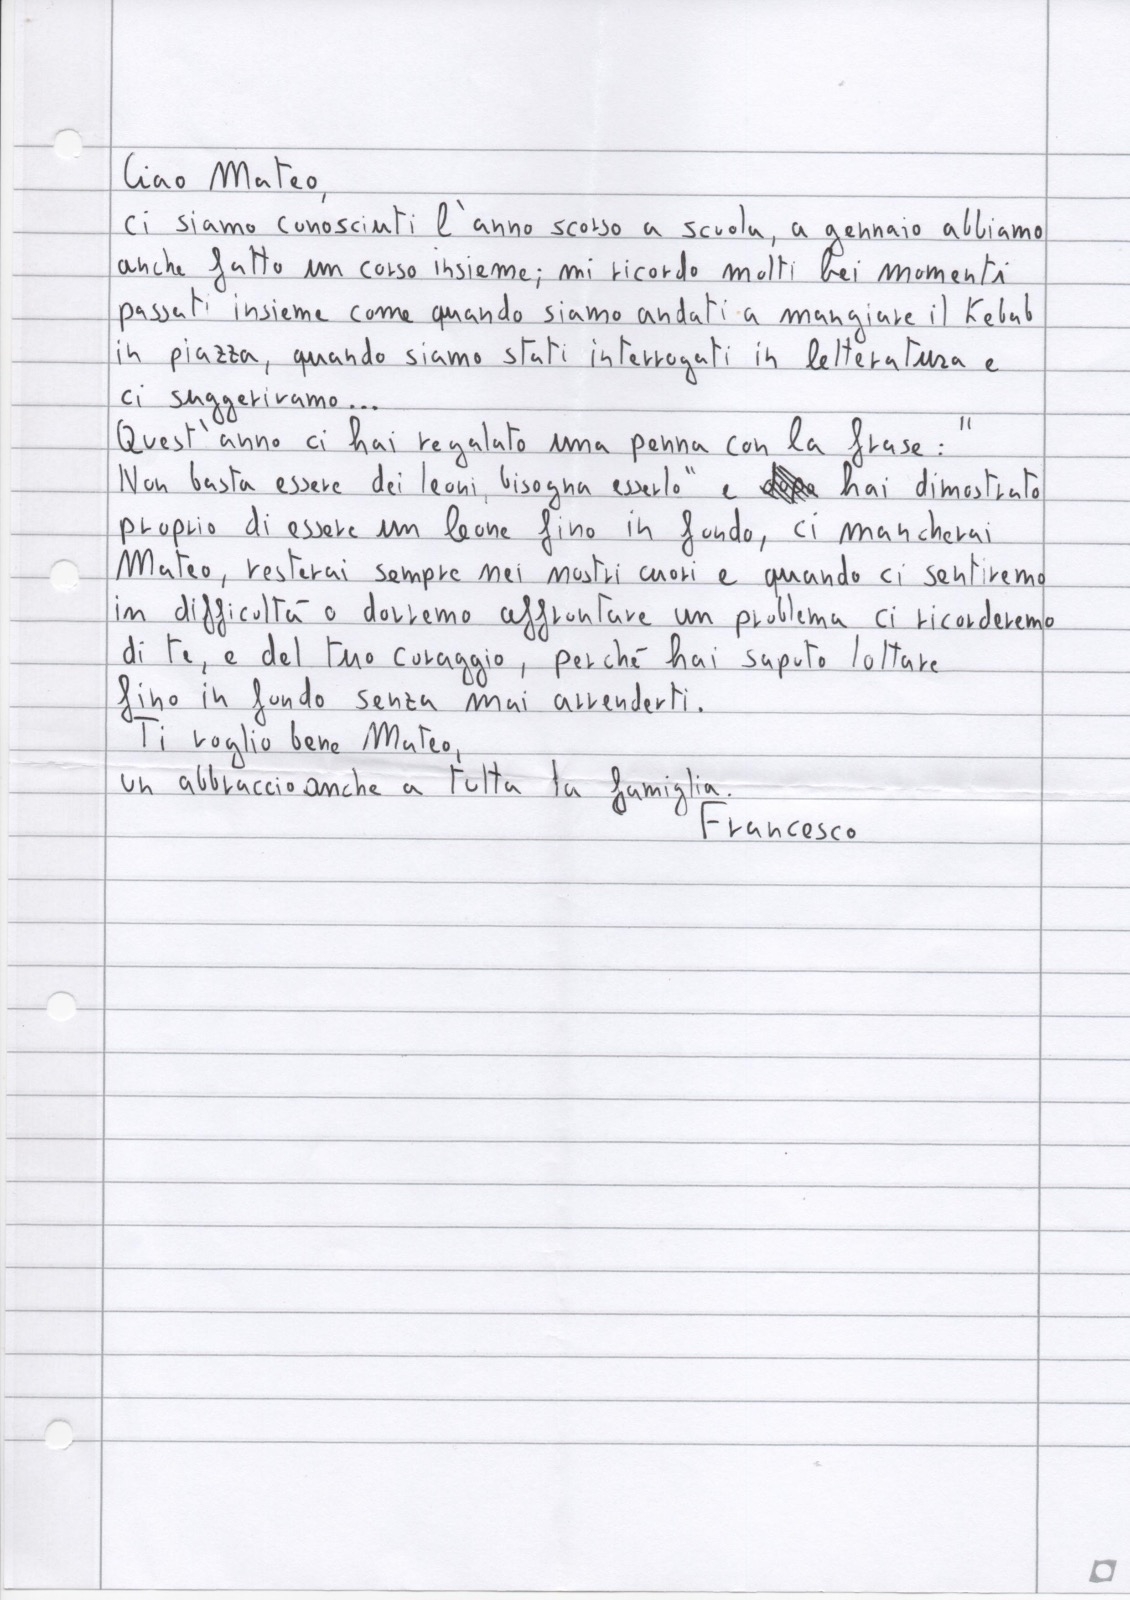 Ciao Mateo,
ci siamo conosciuti l'anno scorso a scuola, a gennaio abbiamo
anche fatto un corso insieme; mi ricordo molti bei momenti
passati insieme come quando siamo andati a mangiare il Kebab
in piazza, quando siamo stati interrogati in letteratura e
ci suggerivamo...
Quest'anno ci hai regalato una penna con la frase: "
Non basta essere dei leoni, bisogna esserlo" e hai dimostrato
proprio di essere un leone fino in fondo, ci mancherai
Mateo, resterai sempre nei nostri cuori e quando ci sentiremo
in difficoltà o dovremo affrontare un problema ci ricorderemo
di te, e del tuo coraggio, perché hai saputo lottare
fino in fondo senza mai arrenderti.
Ti voglio bene Mateo,
un abbraccio anche a tutta la famiglia.
Francesco